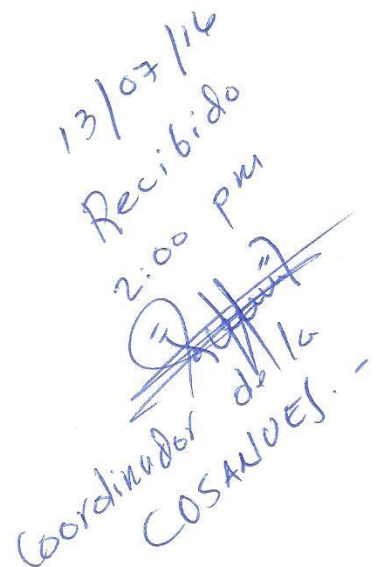 13/07/16
Recibido
2:00 pm
Coordinador de la
COSANUES.-